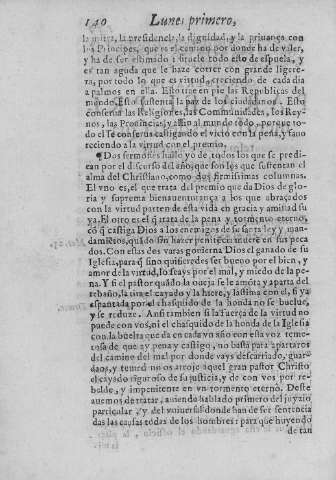 140 Lunes primero,
la mitra, la presidencia, la dignidad, y la priuança con
los Principes, que es el camino por donde ha de valer,
y ha de ser estimado: siruele todo esto de espuela, y
es tan aguda que le haze correr con grande ligere-
za, por todo lo que es virtud, creciendo de cada dia
a palmos en ella. Esto tiene en pie las Republicas del
mundo. Esto sustenta la paz de los ciudadanos. Esto
conserua las Religiones, las Communidades, los Rey-
nos, las Prouincias, y assi al mundo todo, porque to-
do el se conserua castigando el vicio con la pena, y fauo
reciendo a la virtud con el premio.
¶ Dos sermones hallo yo de todos los que se predi-
can por el discurso del año, que son los que sustentan el
alma del Christiano, como dos firmissimas columnas.
El vno es, el que trata del premio que da Dios de glo-
ria y suprema bienauenturança a los que abraçados
con la virtud parten desta vida en gracia y amistad su
ya. El otro es el q̃ trata de la pena y tormento eterno,
cõ q̃ castiga Dios a los enemigos de su santa ley y man-
damiẽtos, quãdo sin hazer penitẽcia muerẽ en sus peca
dos. Con estas dos varas gouierna Dios el ganado de su
Iglesia, para q̃ sino quisieredes ser bueno por el bien, y
amor de la virtud, lo seays por el mal, y miedo de la pe
na. Y si el pastor quãdo la oueja se le amõta y aparta del
rebaño, la tira el cayado y la hiere, y lastima con el, si ya
espantada por el chasquido de la honda no se buelue,
y se reduze. Ansi tambien si la fuerça de la virtud no
puede con vos, ni el chasquido de la honda de la Iglesia
con la buelta que da en cada vn año con esta voz teme-
rosa de que ay pena y castigo, no basta para apartaros
del camino del mal por donde vays descarriado, guar-
daos, y temed no os arroje aquel gran pastor Christo
el cayado riguroso de su justicia, y de con vos por re-
belde, y impenitente en vn tormento eterno. Deste
auemos de tratar, auiendo hablado primero del juyzio
particular, y del vniuersal donde han de ser sentencia
das las causas todas de los hombres: para que huyendo
de tan